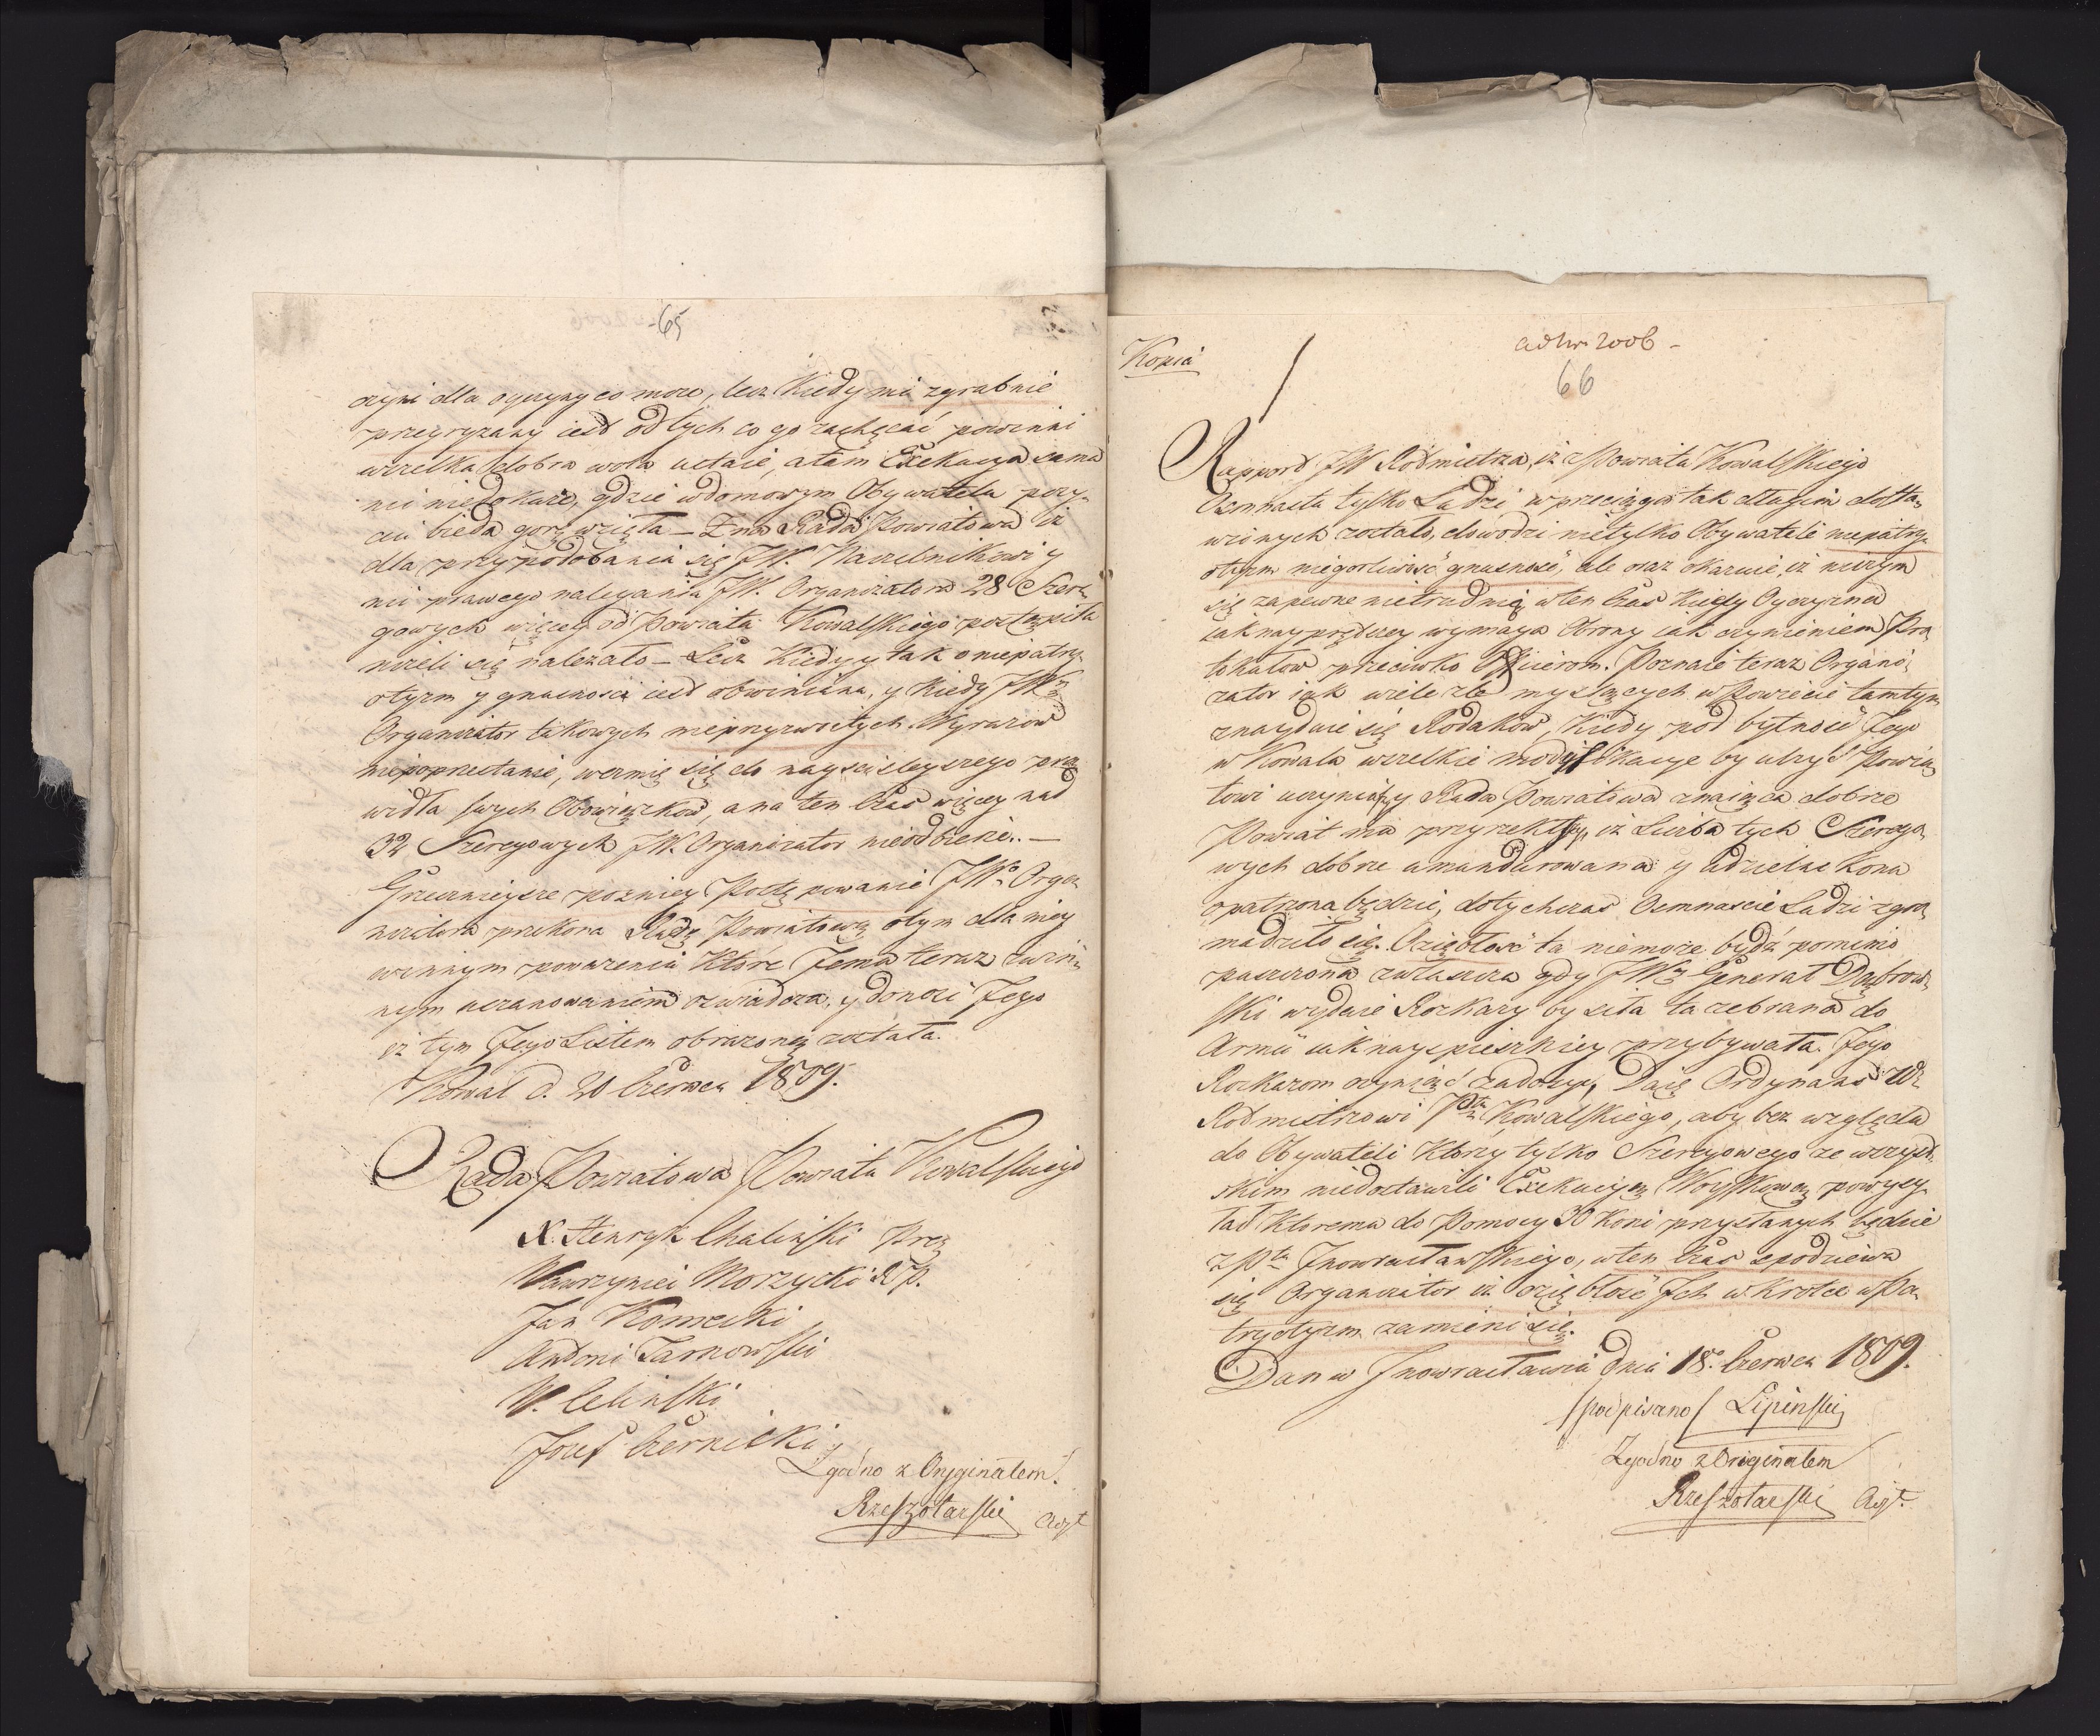 -65
czyni dla oyczyzny co moze, lecz kiedy nie zgrabnie
przegryzany iest od tych co go zachęcać powinni
wszelka dobra wola ustaie, a tam Exekucya sama
nic niedokaże, gdzie w domowym Obywatela poży-
ciu bieda gorę wzięła – Zna Rada Powiatowa iż
dla przypodobania się JW. Naczelnikowi y
nie prawego nalegania JW. Organizatora 28 Szere-
gowych więcey od Powiatu Kowalskiego postąpiła
niżeli się należało – Lecz kiedy y tak o niepatry-
otyzm y gnusności iest obwiniana, y kiedy JWny
Organizator takowych nieprzyzwoitych Wyrazow
nieprzestanie, weźmie się do nayściśleyszego pra
widła swych Obowiązkow, a na ten Czas więcey nad
32 Szeregowych JW. Organizator nieodbierze. –
Grzecznieysze pozniey Postępowanie JWo Orga-
nizatora przekona Radę Powiatową o tym dla niey
winnym poważeniu które Jemu teraz z win-
nym uszanowaniem oświadcza, y donosi Jego
iż tym Jego Listem obrażoną została.
Kowal d. 20 Czerwca 1809.
Rada Powiatowa Powiatu Kowalskiego
X. Henryk Chaliński Prez
Wawrzyniec Morzycki R P.
Jan Komecki
Antoni Tarnowski
W. Celinski
Jozef Czernicki
Zgodno z Oryginałem.
Rzeszotarski Adjt
Kopia
ad Nr 2006 –
66
Rapport JW Rotmistrza, iż z Powiatu Kowalskiego
Osmnastu tylko Ludzi w przeciągu tak długim dosta-
wionych zostało, dowodzi nietylko Obywateli niepatry-
otyzm niegorliwość gnusność, ale oraz okazuie, iż niczym
się zapewne nietrudnią w ten Czas kiedy Oyczyzna
iak nayprędszey wymaga Obrony iak czynieniem Pro
tokułow przeciwko Officierom. Poznaie teraz Organi-
zator iak wiele źle myslących w Powiecie tamtym
znayduie się Rodakow, kiedy pod bytność Jego
w Kowalu wszelkie modyfikacye by ulżyć Powia
towi uczyniwszy Rada Powiatowa znaiąca dobrze
Powiat mu przyrzekłszy, iż Liczba tych Szerego-
wych dobrze umundurowana y w dzielne konie
opatrzona będzie, dotychczas Osmnaście Ludzi zgro-
madziło się. Oziębłość ta niemoże bydź pomimo
puszczona zwłaszcza gdy JWny Generał Dąbrow-
ski wydaie Rozkazy by siła ta zebrana do
Armii iak nayspieszniey przybywała. Jego
Rozkazom czyniąc zadosyć, Daię Ordynans W.
Rotmistrzowi Ptu Kowalskiego, aby bez względu
do Obywateli którzy tylko Szeregowego ze wszyst-
kim niedostawili Exekucyą Woyskową powysy-
łał któremu do Pomocy 30 Koni przysłanych będzie
z Ptu Jnowrocławskiego, w ten Czas spodziewa
się Organizator iż oziębłość Jch w krotce w Pa-
tryotyzm zamieni się.
Dan w Jnowrocławiu dnia 18o Czerwca 1809.
/podpisano/ Lipinski
Zgodno z Originałem
Rzeszotarski Adjt.